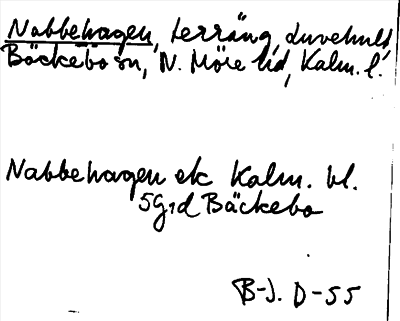 Nabbehagen, terräng, Duvehult,
Bäckebo sn, N. Möre hd, Kalm. l.
Nabbehagen ek Kalm. bl.
5G1d Bäckebo
B-J. D-55